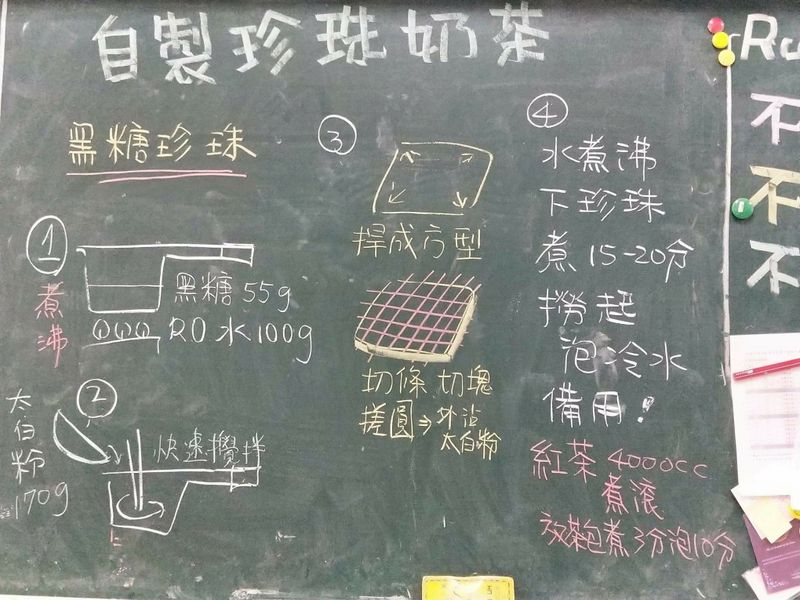 自製珍珠奶茶
黑糖珍珠
①
煮沸
黑糖 55g
RO水100g
②
太白粉170g
快速攪拌
③
捍成方型
切條 切塊
搓圓⇒外沾太白粉
④
水煮沸
下珍珠
煮15-20分
撈起
泡冷水
備用!
紅茶 4000cc
煮滾
放茶包煮3分泡10分
不
不
不